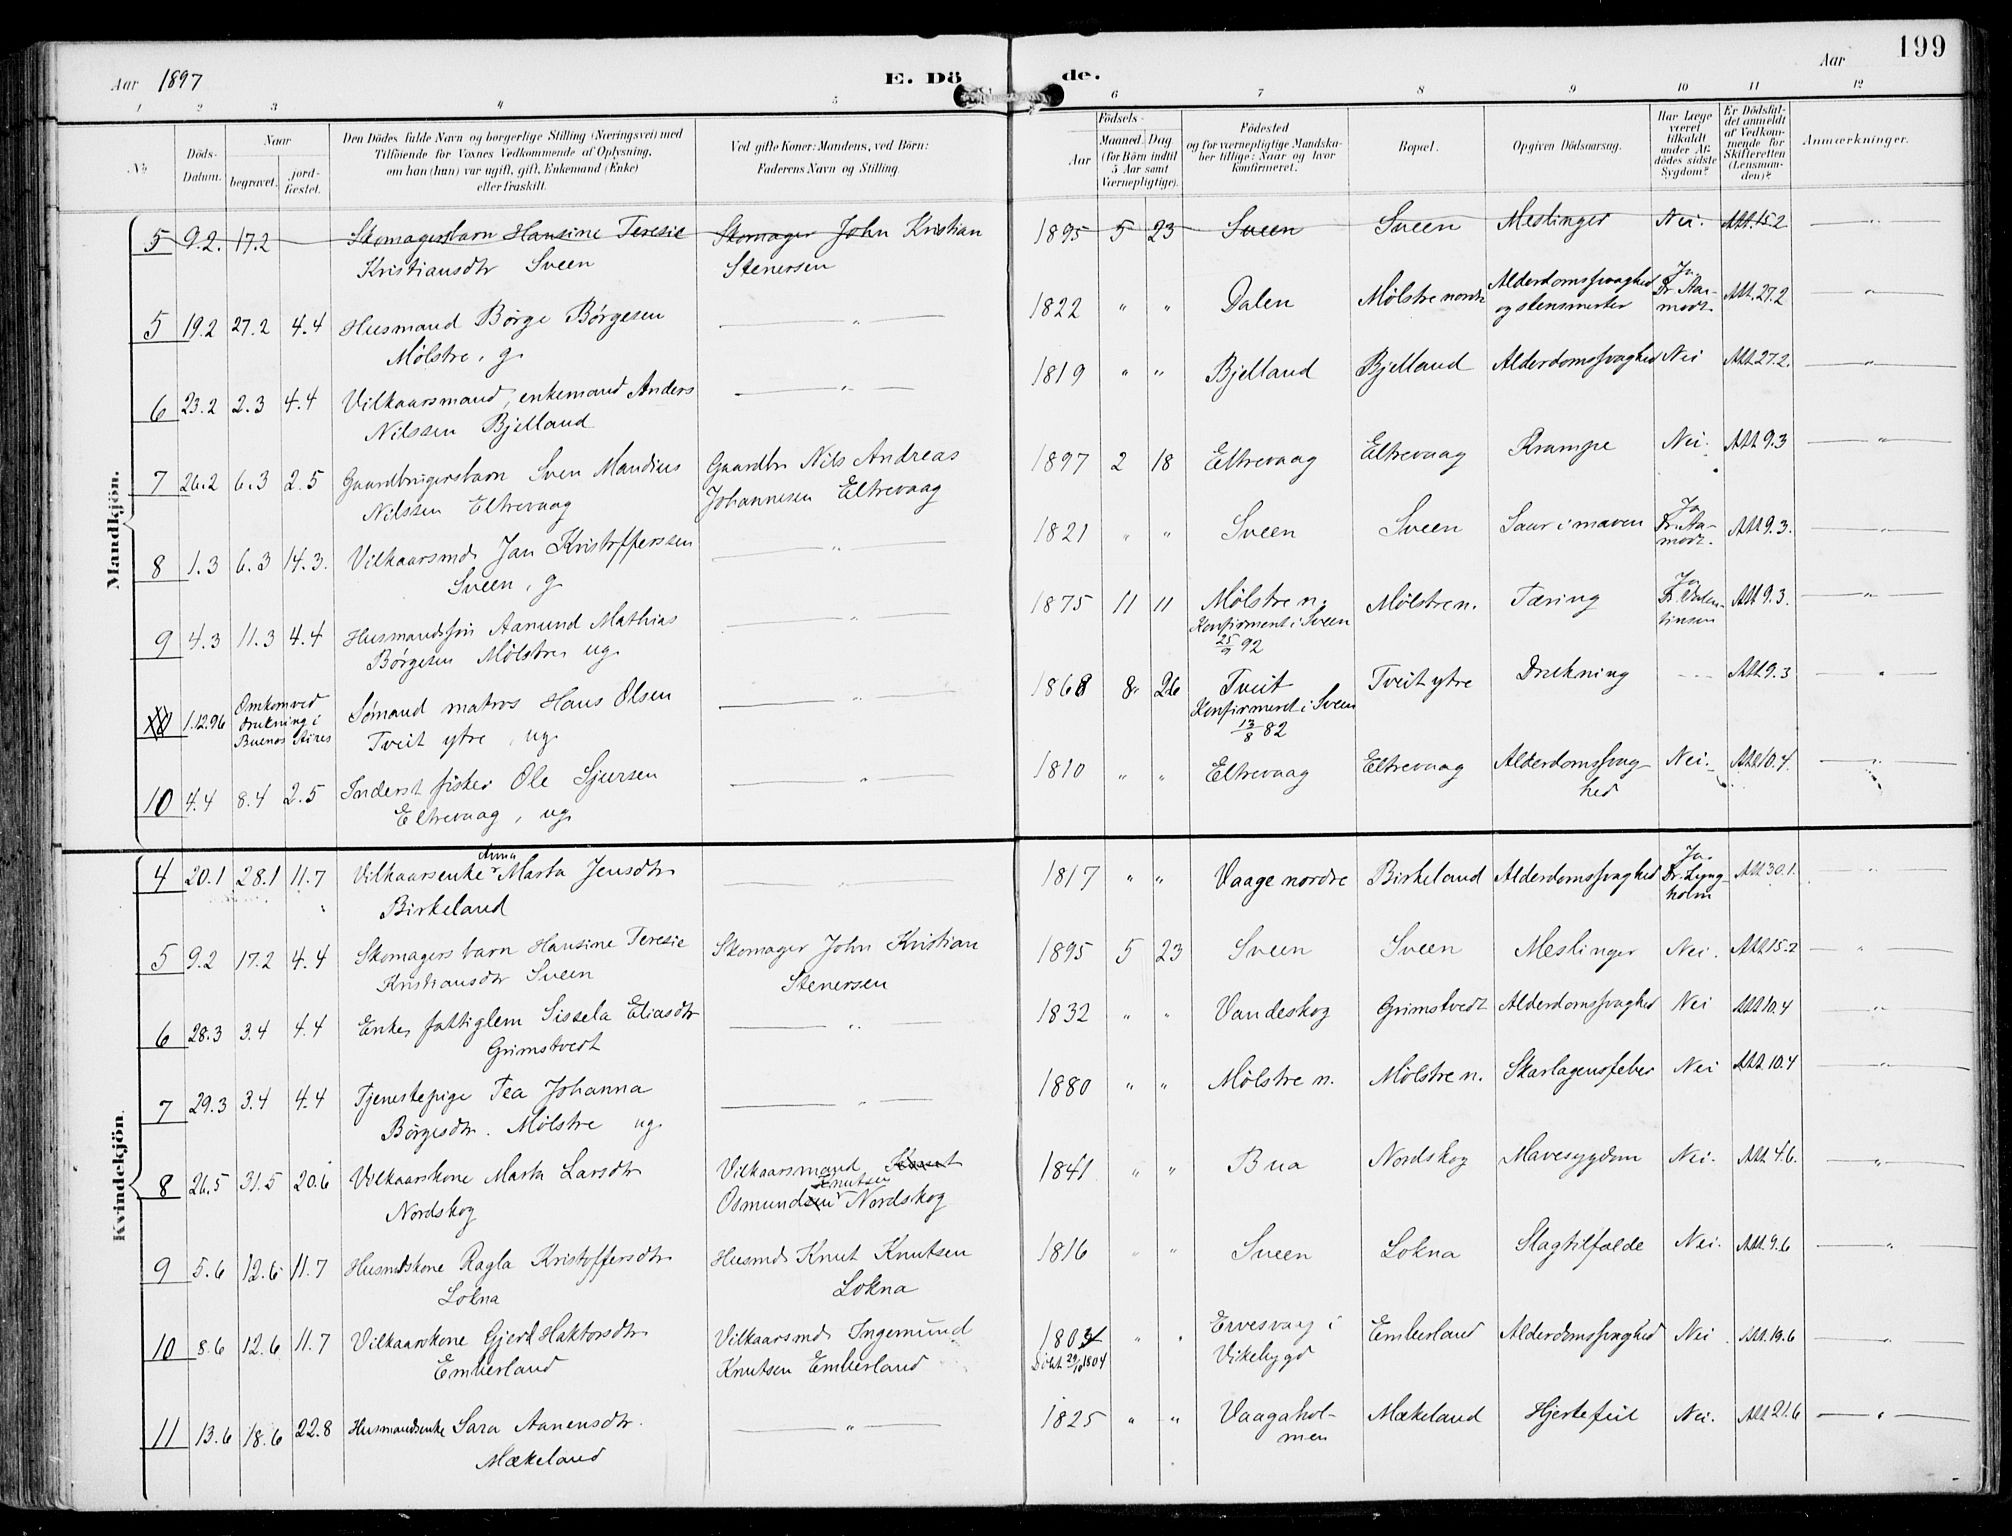 199
Aar 1897
E. Dö de.
Aar
1 2 3 4 5 6 7 8 9 10 11 12
No
Döds-Datum.
Naar
begravet.
jordfæstet.
Den Dödes fulde Navn og borgerlige Stilling (Næringsvei) med
Tilföiende for Voxnes Vedkommende af Oplysning,
om han (hun) var ugift, gift, Enkemand (Enke)
eller fraskilt.
Ved gifte Koner: Mandens, ved Börn:
Faderens Navn og Stilling.
Födsels-
Aar
Maaned. Dag.
(for Börn indtil
5 Aar samt
Værnepligtige).
Födested
og for værnepligtige Mandska-
ber tillige: Naar og hvor
konfirmeret.
Bopæl.
Opgiven Dödsaarsag.
Har Læge
været
tilkaldt
under Af-
dödes sidste
Sygdom?
Er Dödsfal-
det anmeldt
af Vedkom-
mende for
Skifteretten
(Lensman-
den)?
Anmærkninger.
Mandkjön.
5 9.2. 17.2 Skomagersbarn Hansine Teresie Skomager John Kristian 1895 5 23 Sveen Sveen Meslinger Nei. Att. 15.2 "
Kristiansdtr Sveen Stenersen
5 19.2 27.2 4.4 Husmand Børge Børgesen " 1822 " " Dalen Mølstre nordr Alderdomssvaghed Ja Att. 27.2 "
Mølstre, g. og stensmerter Dr. Aa-
modt
6 23.2 2.3 4.4 Vilkaarsmand, enkemand Anders " 1819 " " Bjelland Bjelland Alderdomssvaghed Nei Att. 27.2. "
Nilssen Bjelland
7 26.2 6.3 2.5 Gaardbrugersbarn Sven Mandius Gaardbr Nils Andreas 1897 2 18 Eltrevaag Eltrevaag Krampe Nei. Att 9.3 "
Nilssen Eltrevaag Johannesen Eltrevaag
8 1.3 6.3 14.3. Vilkaarsmd. Jan Kristofferssen " 1821 " " Sveen Sveen Saar i maven Ja Att 9.3. "
Sveen, g. Dr. Aa-
modt.
9 4.3 11.3 4.4 Husmandssøn Aanund Mathias " 1875 11 11 Mølstre n. Mølstre n. Tæring Ja Att 9.3. "
Børgesen Mølstre, ug. Konfirmeret i Sveen
25/9 92
1.12.96 Omkom ved Sømand matros Hans Olsen " 1868 8 26 Tveit Tveit ytre Drukning Att 9.3 "
drukning i Tveit ytre, ug. Konfirmeret i Sveen
Buenos Aires 13/8 82
10 4.4 8.4 2.5 Inderst fisker Ole Sjursen " 1810 " " Eltrevaag Eltrevaag Alderdomssvag- Nei. Att 10.4. "
Eltrevaag, ug. hed
Kvindekjön.
4 20.1 28.1 11.7 Vilkaarsenke Anna Marta Jensdtr " 1817 " " Vaage nordre Birkeland Alderdomssvaghed Ja. Att 30.1. "
Birkeland Dr. Lyng-
holm
5 9.2 17.2 4.4 Skomagersbarn Hansine Teresie Skomager John Kristian 1895 5 23 Sveen Sveen Meslinger Nei. Att 15.2 "
Kristiansdtr Sveen Stenersen
6 28.3 3.4 4.4 Enke, fattiglem Sissela Eliasdtr " 1832 " " Vandeskog Grimstvedt Alderdomssvaghed Nei Att 10.4 "
Grimstvedt
7 29.3 3.4 4.4 Tjenestepige Tea Johanna " 1880 " " Mølstre n. Mølstre n. Skarlagensfeber Nei Att. 10.4 "
Børgesdtr. Mølstre ug.
8 26.5 31.5 20.6 Vilkaarskone Marta Larsdtr Vilkaarsmand Knut 1841 " " Bua Nordskog Mavesygdom Nei. Att 4.6. "
Nordskog Osmundsen Knutsen Nordskog
9 5.6 12.6 11.7 Husmdskone Ragla Kristoffersdtr Husmd. Knut Knutsen 1816 " " Sveen Lokna Slagtilfælde Nei. Att. 9.6 "
Lokna Lokna
10 8.6 12.6 11.7 Vilkaarskone Gjert Haktorsdtr Vilkaarsmd. Ingemund 1804 " " Ervesvaag i Emberland Alderdomssvaghed Nei Att. 19.6 "
Emberland Knutsen Emberland døbt 29/10 1804 Vikebygd
11 13.6 18.6 22.8 Husmandsenke Sara Aanensdtr. " 1825 " " Vaagahol- Mækeland Hjertefeil Nei. Att 21.6 "
Mækeland men